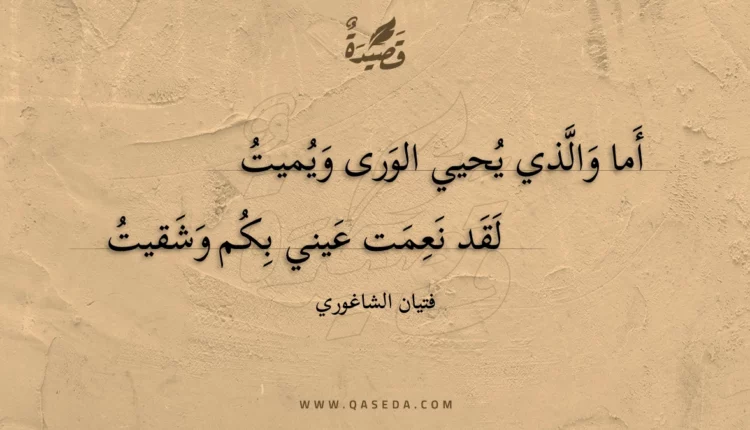 قَصِيْدَةٌ
أَما وَالَّذي يُحيي الوَرى وَيُميتُ
لَقَد نَعِمَت عَيني بِكُم وَشَقيتُ
فتيان الشاغوري
WWW.QASEDA.COM